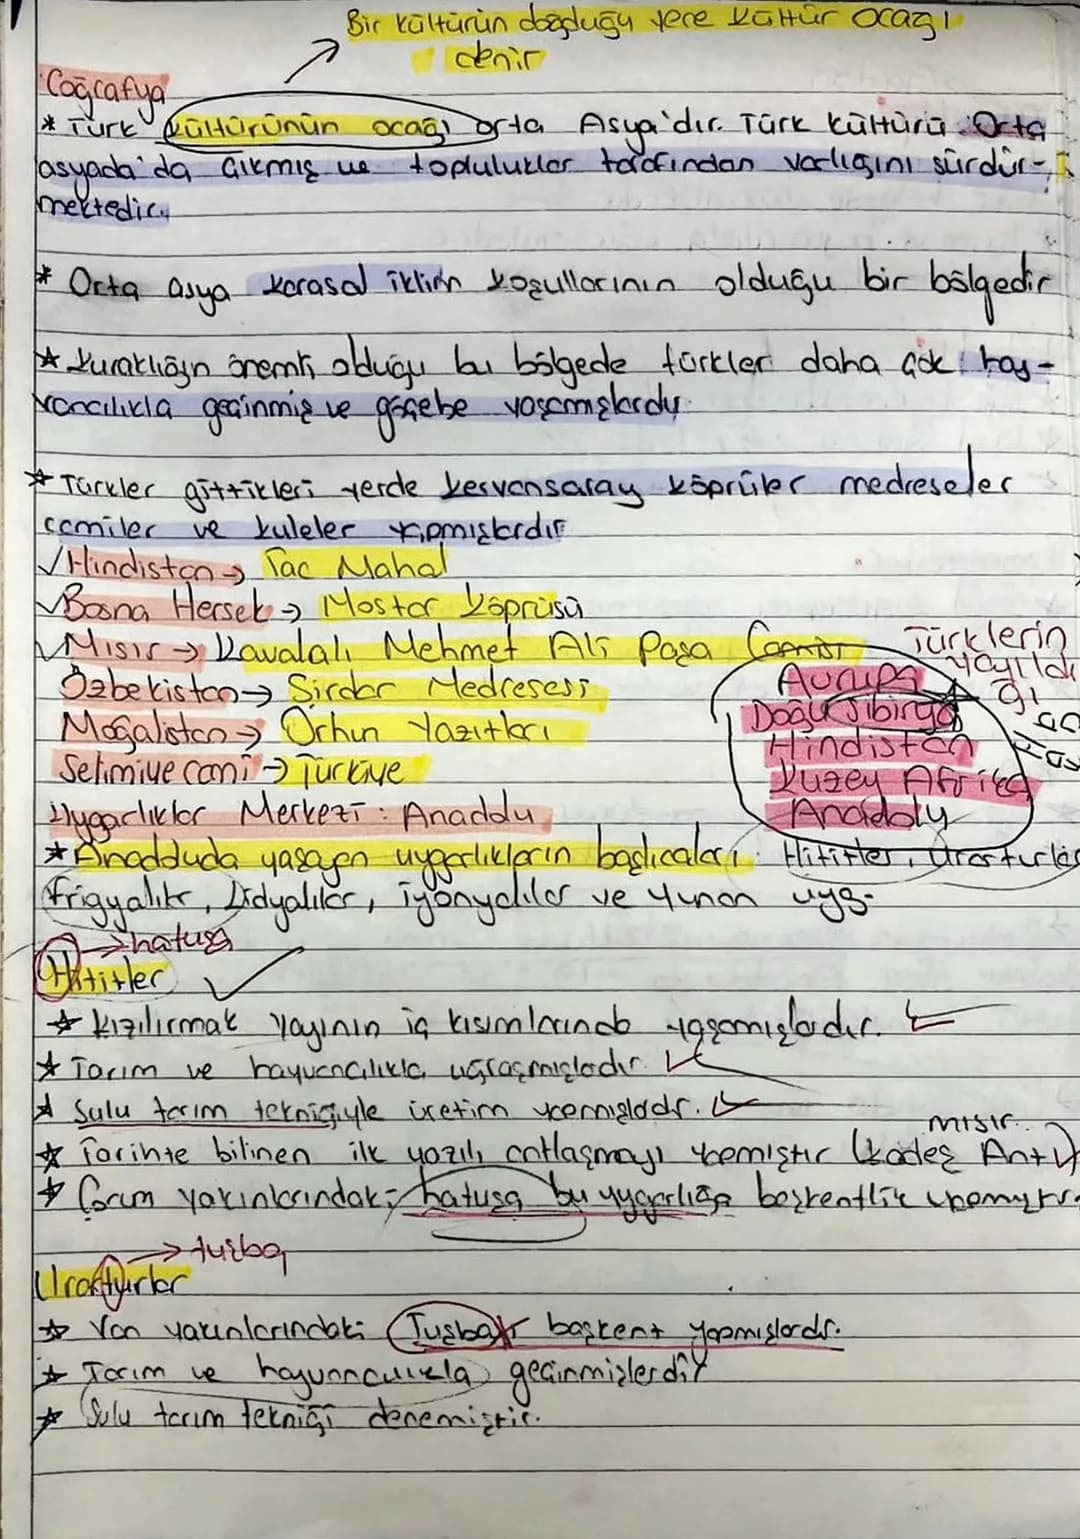 Bir kültürün doğduğu yere kültür ocağı
denir
Coğrafya
* Türk kültürünün ocağı orta Asya'dır. Türk kültürü Orta
asyada'da çıkmış ve topluluklar tarafından varlığını sürdür-
mektedir.
* Orta asya karasal iklim koşullarının olduğu bir bölgedir
* Kuraklığın önemli olduğu bu bölgede türkler daha çok hay-
vancılıkla geçinmiş ve göçebe yaşamışlardır.
* Türkler gittikleri yerde kervansaray köprüler medreseler
camiler ve kuleler yapmışlardır
✓Hindistan → Tac Mahal
✓Bosna Hersek → Mostar Köprüsü
✓Mısır → Kavalalı Mehmet Ali Paşa Camisi
Özbekistan → Şirdar Medresesi
Moğalistan → Orhun Yazıtları
Selimiye cami → Türkiye
Türklerin
yayıldı
ğı
Avrupa
Doğu Sibirya
Hindistan
Kuzey Afrika
Anadolu
Uygarlıklar Merkezi: Anadolu
* Anadduda yaşayan uygarlıkların başlıcaları: Hititler, Urartular
frigyalılar, Lidyalılar, iyonyalılar ve Yunan uyg.
→ hatuşa
Hititler ✓
* Kızılırmak Yayının iç kısımlarında yaşamışlardır.
* Tarım ve hayvancılıkla uğraşmışladır.
* Sulu tarım tekniğiyle üretim yapmışladır.
mısır..
* Tarihte bilinen ilk yazılı antlaşmayı yapmıştır (Kadeş Ant)
* Çorum yakınlarındaki hatuşa bu uygarlığa başkentlik yapmıştır.
→ tuşba
Urarturlar
* Van yakınlarındaki Tuşbayı başkent yapmışlardır.
* Tarım ve hayvancılıkla geçinmişlerdir
* Sulu tarım tekniği denemiştir.